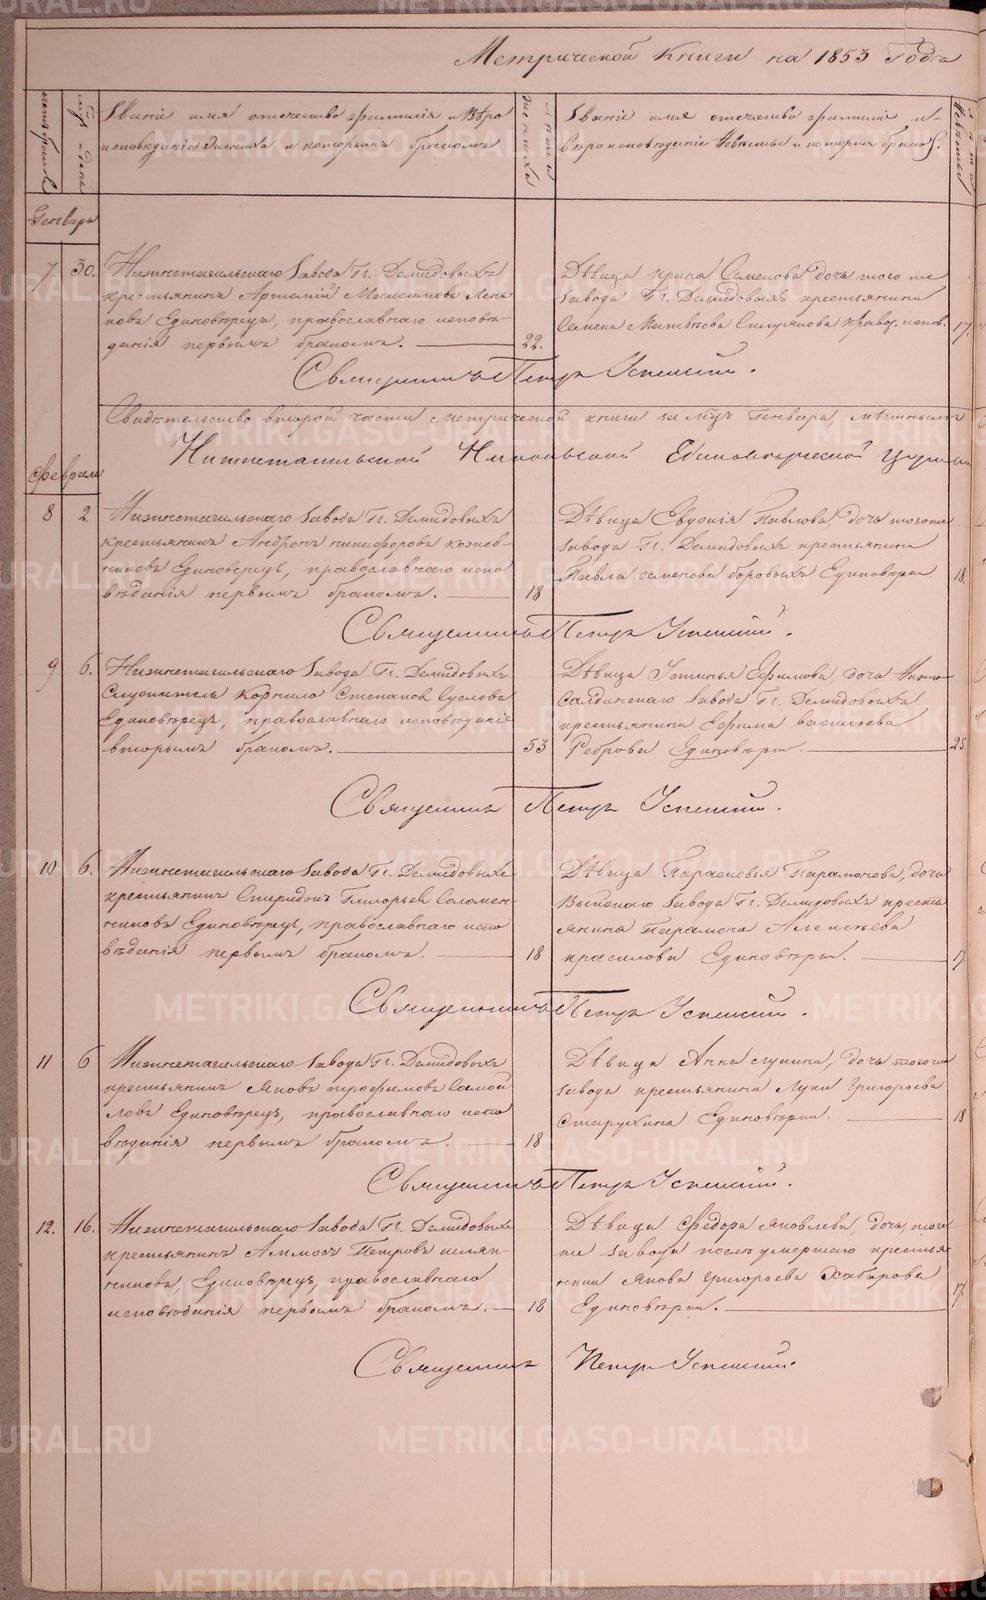 Метрической книги на 1853 годъ
Званіе имя отечество фамилія и Вѣро
исповѣданіе жениха и которымъ бракомъ
лѣта жениха
Званіе имя отечество фамилія и
вѣроисповѣданіе Невѣсты и которымъ бракомъ.
лѣта Невѣсты
Генваря
7. 30. Нижнетагильскаго Завода Гг. Демидовыхъ
крестьянинъ Артемій
Единовѣрецъ, православнаго исповѣ-
данія первымъ бракомъ. 22.
Дѣвица Ирина Семенова дочь того же
Завода Гг. Демидовыхъ крестьянина
Семена Матвѣева Силуянова Правос. испов. 17.
Священникъ Петръ Успенскій.
Свидѣтельство второй части метрической книги за мцъ Генварь,
Нижнетагильской Никольской Единоверческой Церкви
Февраля
8 2 Нижнетагильскаго Завода Гг. Демидовыхъ
крестьянинъ Андронъ Никифоровъ Кожев-
никовъ Единоверецъ, православнаго испо
вѣданія первымъ бракомъ. 18
Дѣвица Евдокія Павлова, дочь тогоже
Завода Гг. Демидовыхъ крестьянина
Павла Семенова Боровыхъ Единовѣрки. 18.
Священникъ Петръ Успенскій.
9 6. Нижнетагильскаго Завода Гг. Демидовыхъ
Служитель Корнило Степановъ Сусловъ
Единовѣрецъ, православнаго исповѣданіе
вторымъ бракомъ. 53
Дѣвица Устинья Ефимова, дочь Нижне
Салдинскаго Завода Гг. Демидовыхъ
крестьянина Ефима Васильева
Реброва Единовѣрки. 25.
Священникъ Петръ Успенскій.
10 6. Нижнетагильскаго Завода Гг. Демидовыхъ
крестьянинъ Спиридонъ Григорьевъ Соломен-
никовъ Единовѣрецъ, православнаго испо
вѣданія первымъ бракомъ. 18
Дѣвица Парасковья Парамонова, дочь
Выйскаго Завода Гг. Демидовыхъ кресть
янина Парамона Алексѣева
Красилова Единовѣрки. 17
Священникъ Петръ Успенскій.
11 6 Нижнетагильскаго Завода Гг. Демидовыхъ
крестьянинъ Яковъ Трофимовъ Самой
ловъ Единовѣрецъ, православнаго испо
вѣданія первымъ бракомъ. 18
Дѣвица Анна Лукина, дочь тогоже
Завода крестьянина Луки Григорьева
Старухина Единовѣрки. 18
Священникъ Петръ Успенскій.
12. 16. Нижнетагильскаго Завода Гг. Демидовыхъ
крестьянинъ Аммосъ Петровъ Шляп-
никовъ, Единовѣрецъ, православнаго
исповѣданія первымъ бракомъ. 18
Дѣвица Федора Яковлева, дочь, того
же завода послѣ умершаго крестья-
нина Якова Григорьева Хабарова
Единовѣрки. 17.
Священникъ Петръ Успенскій.
METRIKI.GASO-URAL.RU